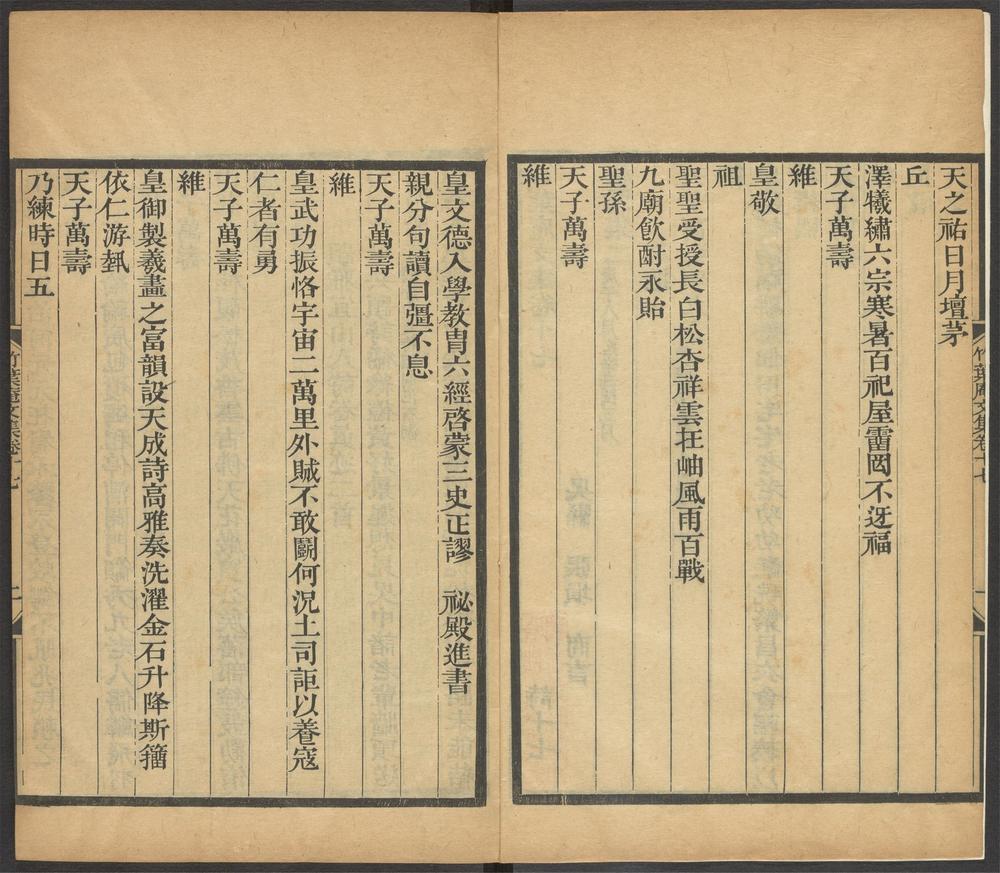 天之祐日月壇茅
丘
澤犧繡六宗寒暑百祀屋霤罔不迓福
天子萬壽
維
皇敬
祖
聖聖受授長白松杏祥雲在岫風雨百戰
九廟飲酎永貽
聖孫
天子萬壽
維
皇文德入學教胄六經啓蒙三史正謬 祕殿進書
親分句讀自彊不息
天子萬壽
維
皇武功振恪宇宙二萬里外賊不敢鬭何況土司詎以養寇
仁者有勇
天子萬壽
維
皇御製羲畵之富韻設天成詩高雅奏洗濯金石升降斯籀
依仁游埶
天子萬壽
乃練時日五
竹葉庵文集卷十七
竹葉庵文集卷十七 二